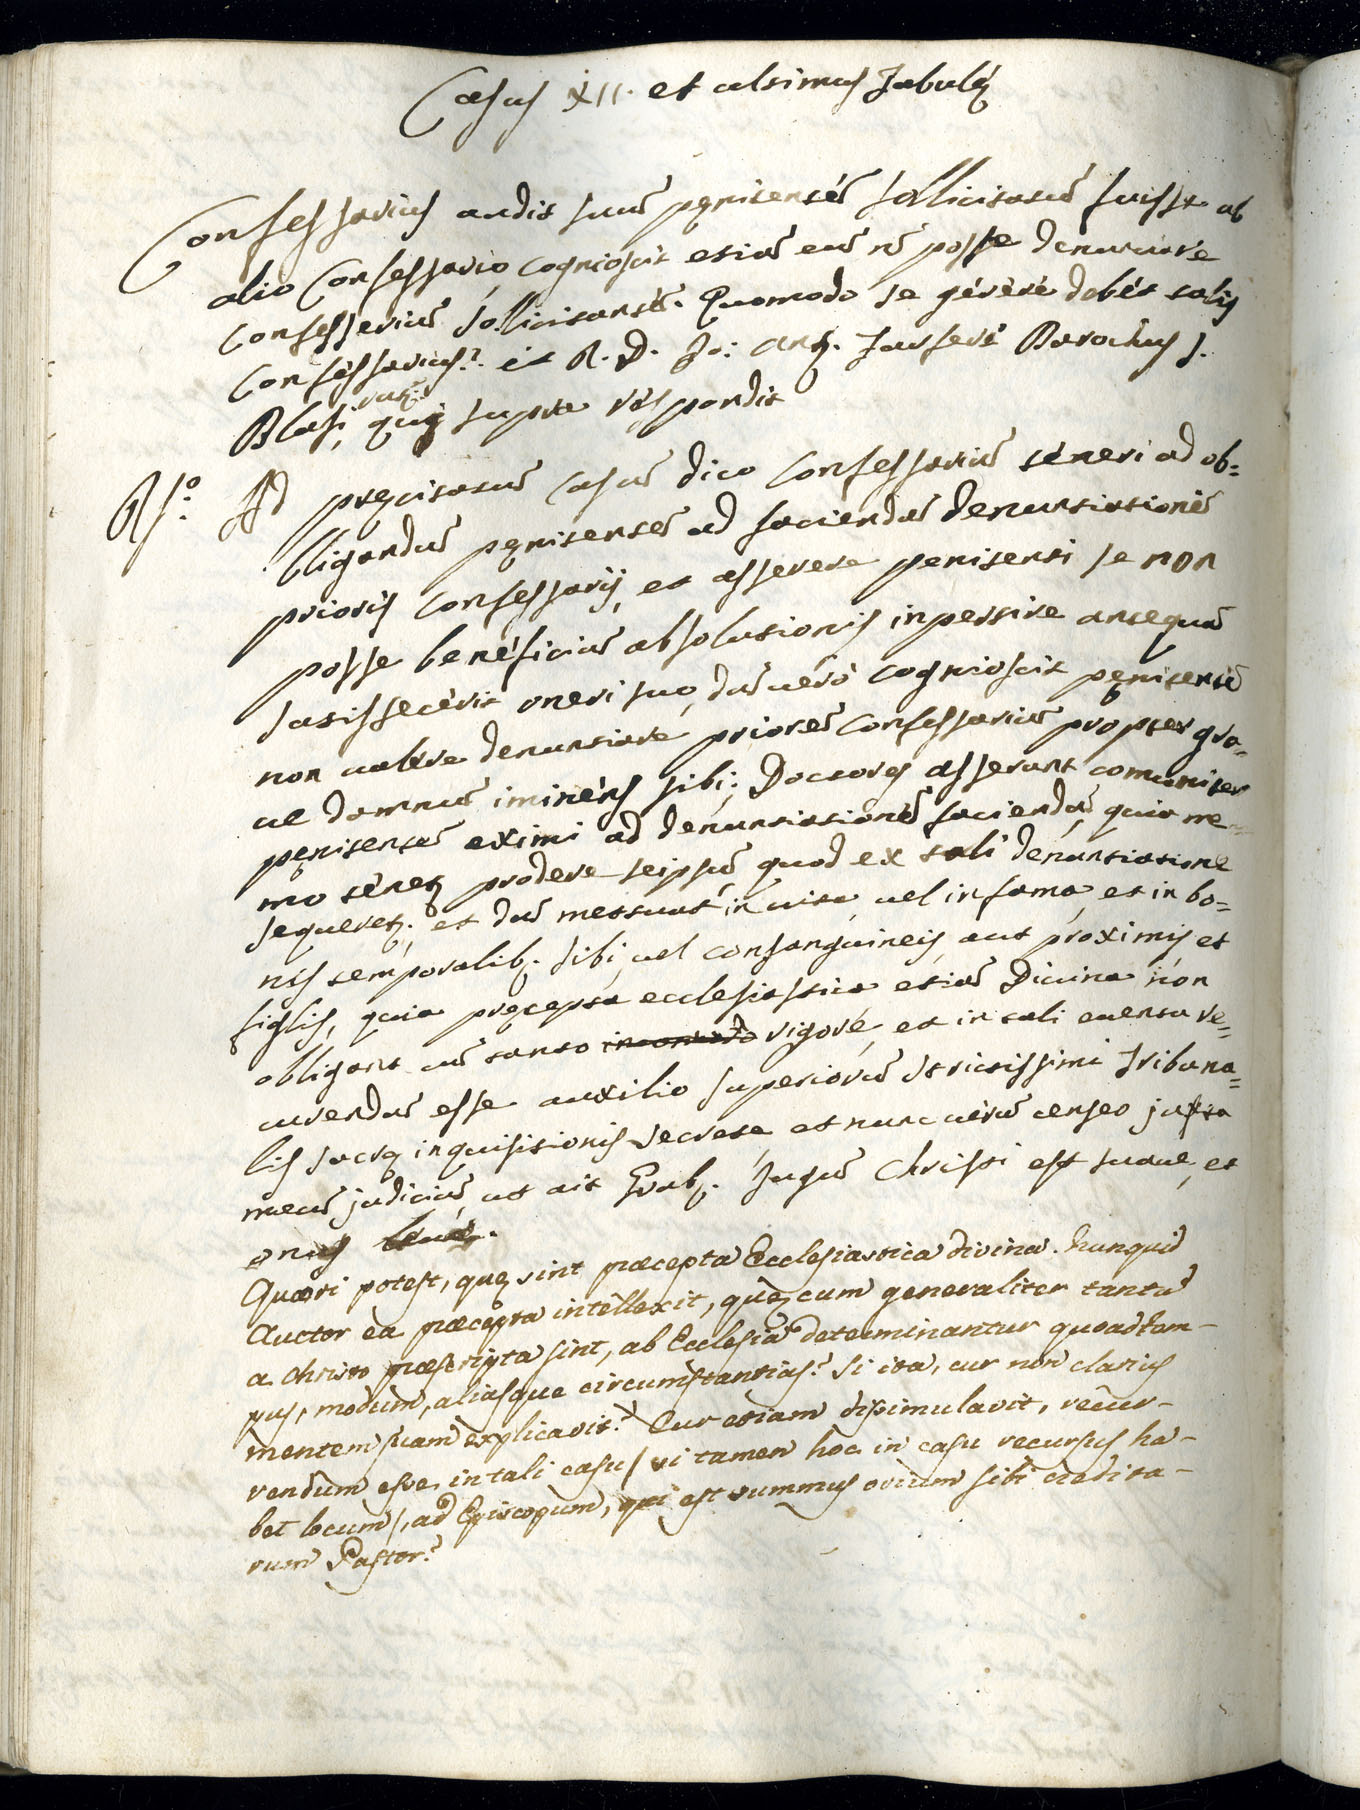 Casus XII. et ultimus Tabulę
Confessarius audit suũ pęnitentẽ sollicitatũ fuisse ab
alio Confessario, cognioscit etiã eũ nõ posse denunciare
Confessariũ sollicitantẽ. Quomodo se gérére debét talis
Confessarius? et R. D. Jo: Ant. Parochus S.
Blasj, quę supra réspondit
Rs.º Ad pręcitatũ Casũ dico Confessariũ téneri ad ob=
bligandũ pęnitentẽ ad faciendã denuntiationẽ
prioris Confessarij, et asserere penitenti se non
posse benéficiũ absolutionis inpertire antequã
satisfecérit oneri suo, dũ uérò cognioscit pęnitentẽ
non ualere denuntiare priorẽ Confessariũ propter gra=
ue damnũ iminéns sibi; Doctores asserunt comuniter
pęnitentẽ eximi ad dénuntiationẽ faciendã, quia ne=
mo ténet prodere seipsũ, quod ex tali dénuntiatione
sequeret. et dũ mettuat in uita, uel in fama, et in bo=
nis temporalib. sibi, uel consanguineis, aut próximis et
figlis, quia pręcepta ecclesiastica etiã Diuina non
obligant cũ tanto rigoré, et in tali euentu re=
currendũ esse auxilio superiorũ strictissimi Tribuna=
lis sacrę inquisitionis secrete, et nunc uérũ censeo juxta
meũ judiciũ, ut ait Jugũ Christi est suaue, et
onus leué.
Quæri potest, quę sint præcepta Ecclesiastica divina. Nunquid
Auctor ea præcepta intéllexit, quę cum generaliter tantũ
a Christo præscripta sint, ab Ecclesia determinantur quoad tem-
pus, modum, aliasque circumstantias? Si ita, cur non clarius
mentem suam explicavit? Cur etiam dissimulavit, recur-
rendum esse in tali casu / si tamen hoc in casu recursus ha-
bet locum /, ad Episcopum, qui est summus ovium sibi credita-
rum Pastor?